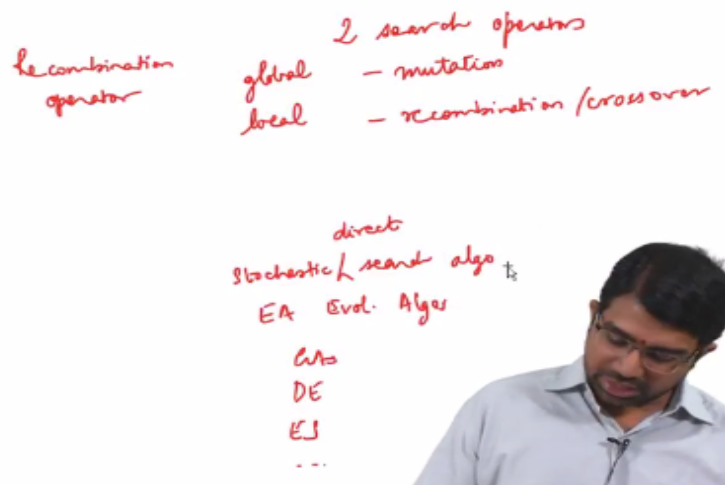 2 search operators
Recombination
operator
global – mutation
local – recombination/crossover
direct
Stochastic / search algo
EA Evol. Algos
GAs
DE
ES
...